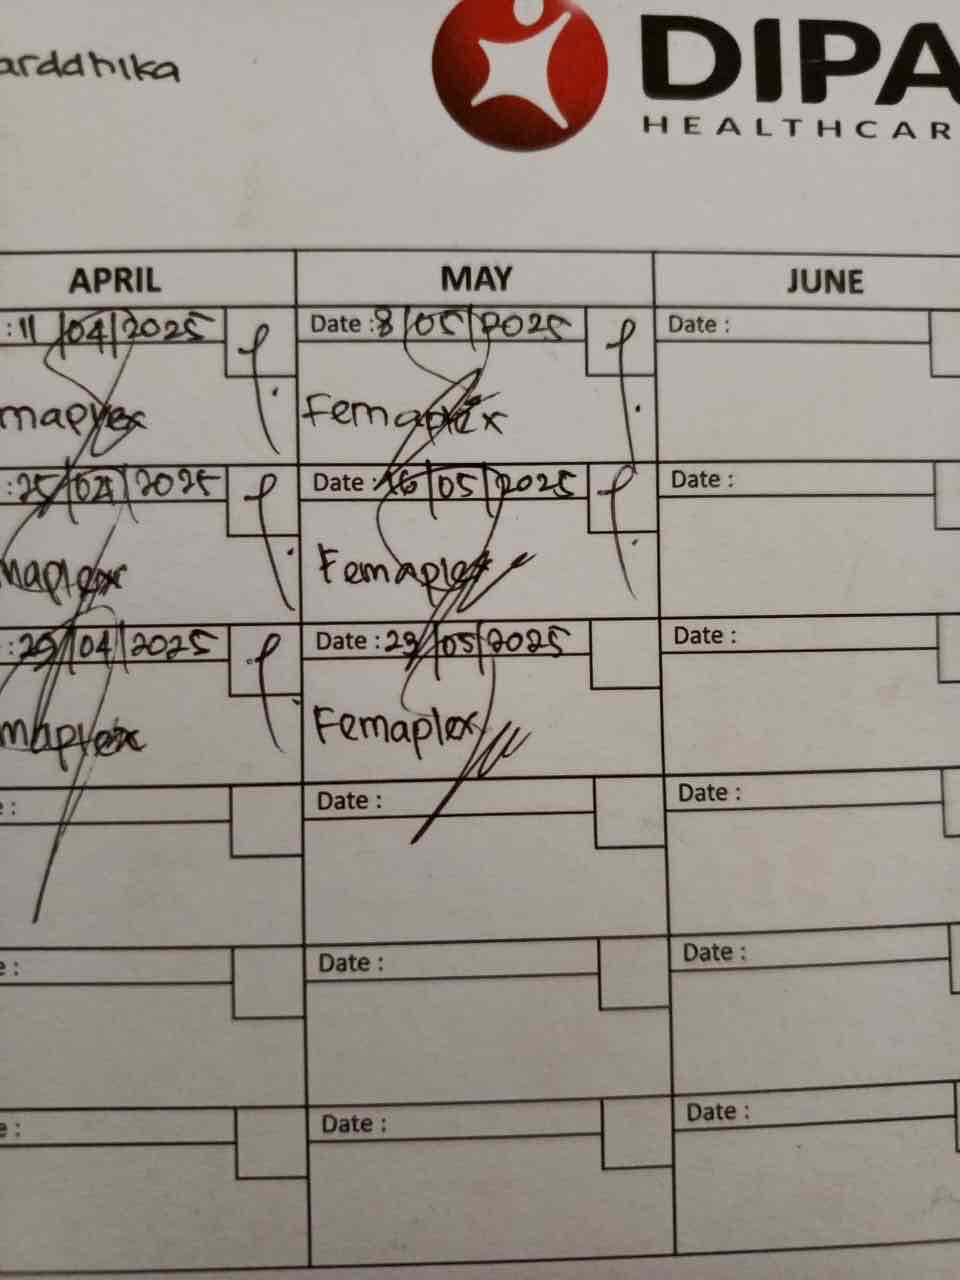 arddhika
DIPA
HEALTHCAR
APRIL MAY JUNE
: 11/04/2025 Date : 8/05/2025 Date :
maplex Femaplex
: 25/04/2025 Date : 16/05/2025 Date :
maplex Femaplex
: 29/04/2025 Date : 23/05/2025 Date :
maplex Femaplex
e : Date : Date :
e : Date : Date :
e : Date : Date :